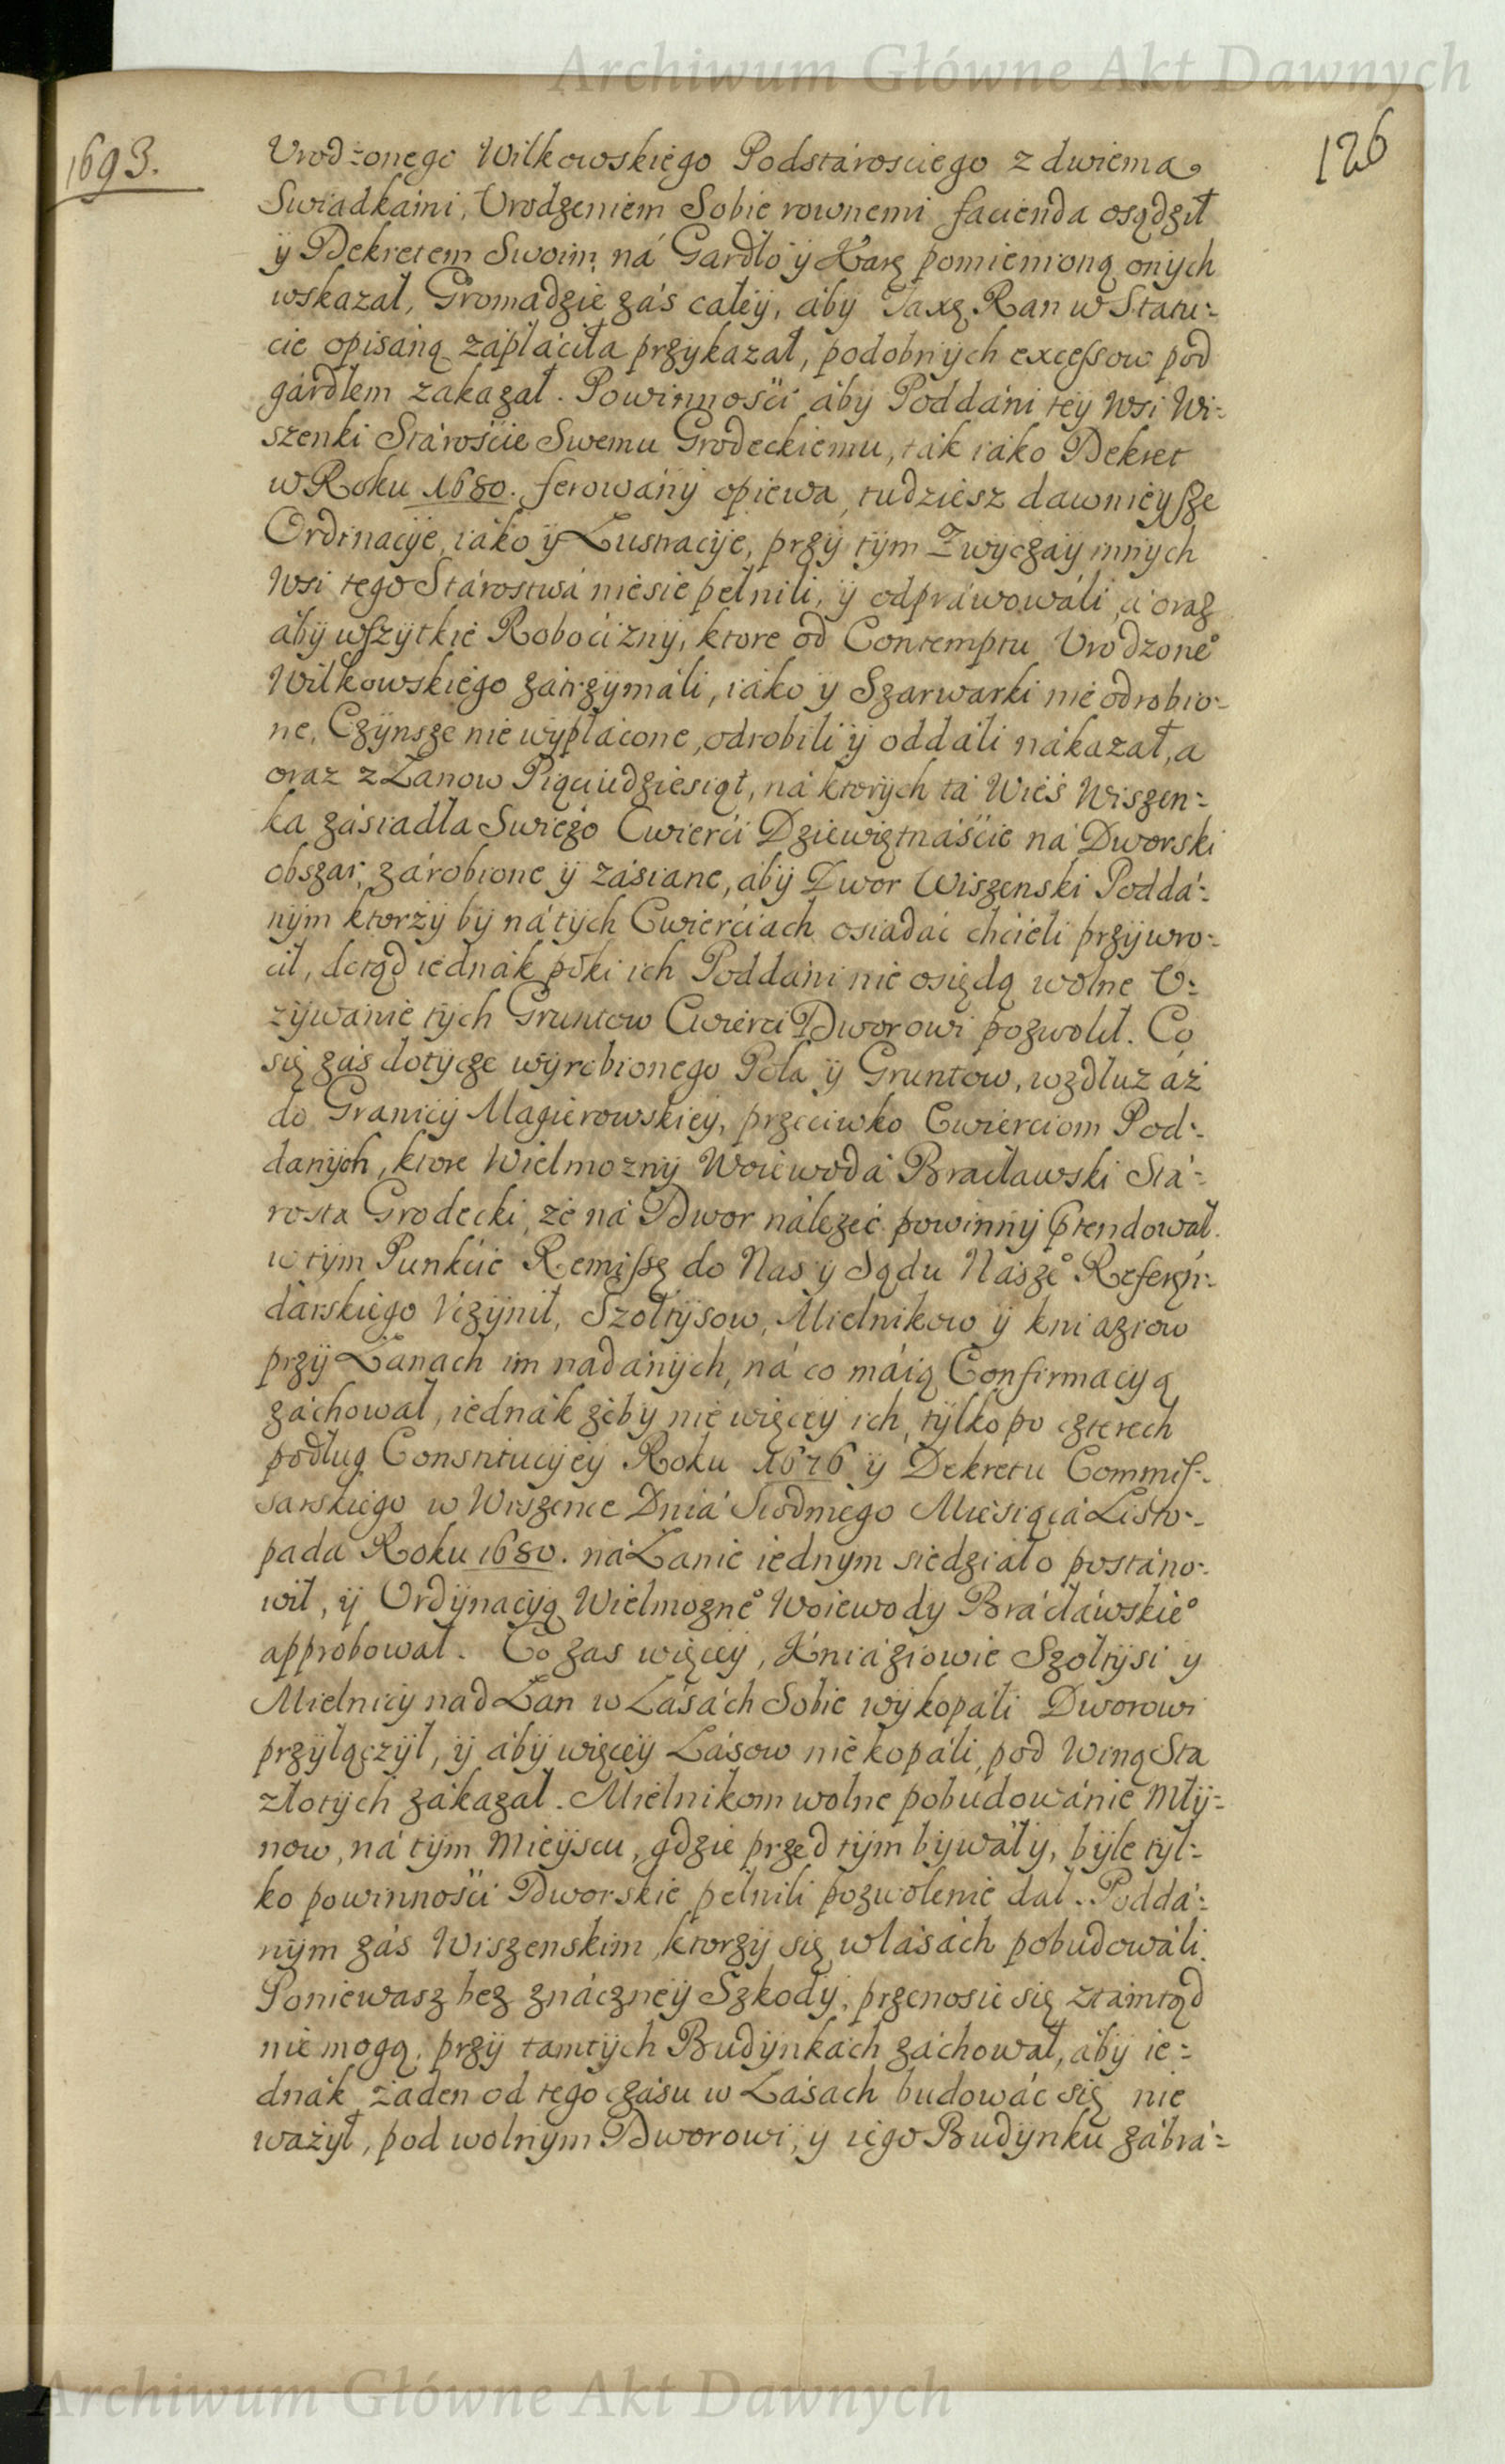 Archiwum Główne Akt Dawnych
1693.
126
Vrodzonego Wilkowskiego Podstárosciego z dwiema
Swiadkámi, Vrodzeniem Sobie rownemi facienda osądził
ÿ Dekretem Swoim ná Gardło ÿ Karę pomienioną onych
wskazał, Gromadzie záś całeÿ, áby Taxę Ran w Statu:
cie opisáną zápłáciła przykazał, podobnÿch excessow pod
gárdłem zakazał. Powinnośći áby Poddáni teÿ Wsi Wi:
szenki Stárośćie Swemu Grodeckiemu, ták iáko Dekret
w Roku 1680. ferowánÿ opiewa, tudziesz dawnieÿsze
Ordinacÿe, iáko ÿ Lustracÿe, przÿ tÿm Zwÿczaÿ innÿch
Wsi tego Stárostwá niesie pełnili, ÿ odpráwowáli, á oraz
ábÿ wszÿtkie Roboćiznÿ, ktore od Contemptu Vrodzone°
Wilkowskiego zátrzÿmáli, iáko ÿ Szarwarki nie odrobio:
ne, Czÿnsze nie wÿpłácone, odrobili ÿ oddáli nákazał, a
oraz z Łanow Piąćiudziesiąt, ná ktorÿch tá Wieś Wiszen:
ka zásiadła Swieżo Cwierći Dziewiętnáśćie ná Dworski
obszar, zárobione ÿ zásiane, ábÿ Dwor Wiszenski Poddá:
nÿm ktorzÿ bÿ ná tÿch Cwierćiach osiadáć chćieli przÿwro:
ćił, dotąd iednák poki ich Poddáni nie osiędą wolne V:
zÿwánie tÿch Gruntow Cwierći Dworowi pozwolił. Co
się záś dotÿcze wÿrobionego Pola ÿ Gruntow, wzdłuż áż
do Granicÿ Magierowskieÿ, przeciwko Cwierciom Pod:
danÿch, ktore Wielmoznÿ Woiewodá Bracławski Stá:
rosta Grodecki, że ná Dwor nálezeć powinnÿ prtendował.
w tÿm Punkćie Remissę do Nas ÿ Sądu Násze° Referęn:
dárskiego Vczÿnił, Szołtÿsow, Mielnikow ÿ kniaziow
przÿ Łanach im nadánÿch, ná co máią Confirmacyą
záchował, iednák żebÿ nie więceÿ ich, tÿlko po czterech
podług Constitucÿeÿ Roku 1676 ÿ Dekretu Commis:
sarskiego w Wiszence Dniá Siodmego Miesiącá Listo:
pada Roku 1680. ná Łanie iednym siedziało postáno:
wił, ÿ Ordÿnacÿą Wielmozne° Woiewody Brácłáwskie°
approbował. Co zas więceÿ, Kniáziowie Szołtÿsi y
Mielnicÿ nad Łan w Lásách Sobie wÿkopáli Dworowi
przÿłączÿł, ÿ ábÿ więceÿ Lásow nie kopáli, pod Winą Sta
złotÿch zákazał. Mielnikom wolne pobudowánie Młÿ:
now, ná tÿm Mieÿscu, gdzie przed tÿm bÿwáły, bÿle tÿl:
ko powinnośći Dworskie pełnili pozwolenie dał. Poddá:
nÿm záś Wiszenskim ktorzÿ się w lásách pobudowáli.
Poniewasz bez znáczneÿ Szkodÿ, przenosić się ztámtąd
nie mogą, przÿ tamtÿch Budÿnkách záchował, ábÿ ie:
dnák żaden od tego czásu w Lásach budowáć się nie
ważÿł, pod wolnÿm Dworowi, ÿ iego Budÿnku zábrá:
Archiwum Główne Akt Dawnych